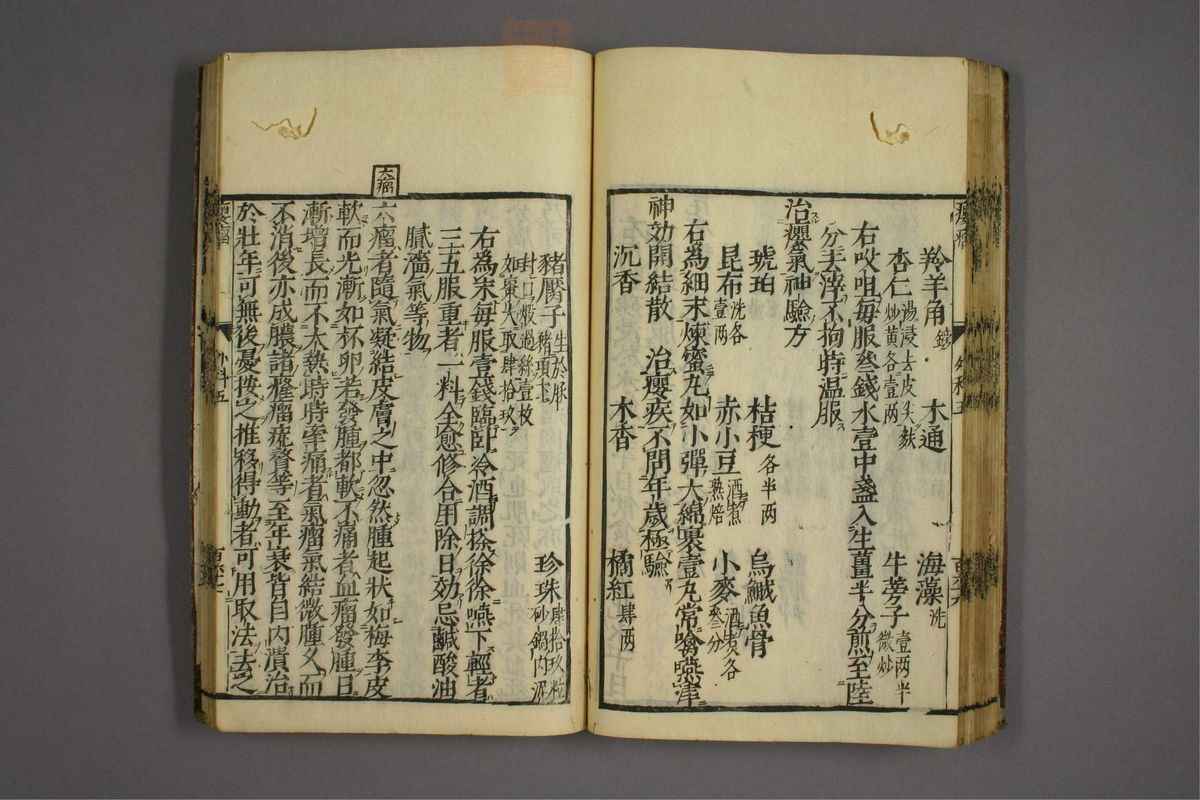 羚羊角鎊 木通 海藻洗
杏仁湯浸去皮尖麸炒黄各壹両 牛蒡子壹両半微炒
右㕮咀每服叁錢水壹中盞入生薑半分煎至陸
分去滓不拘時温服
治癭氣神驗方
琥珀 桔梗各半両 烏鰔魚骨
昆布洗各壹両 赤小豆酒煮熟焙 小麥酒煮各叁分
右為細末煉蜜丸如小彈大綿裹壹丸常噙嚥津
神効開結散 治癭疾不問年歲極驗
沉香 木香 橘紅肆両
猪靨子生於豚猪項下 珍珠肆拾玖粒砂鍋内泥
封口煅過絲壹枚
如棗大取肆拾玖
右為末每服壹錢臨卧冷酒調搽徐徐嚥下輕者
三五服重者一料全愈修合用除日効忌鹹酸油
膩濇氣等物
六瘤
六瘤者隨氣凝結皮膚之中忽然腫起狀如梅李皮
軟而光漸如杯卵若發腫都軟不痛者血瘤發腫日
漸增長而不大熱時時牽痛者氣瘤氣結微腫久而
不消後亦成膿諸癭瘤疣贅等至年衰皆自内潰治
於壯年可無後憂按之推移得動者可用取法去之
外科五
外科五